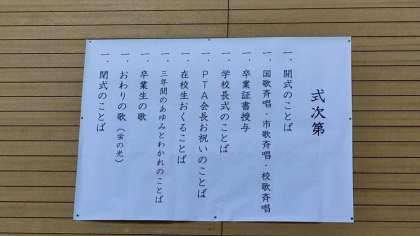 式次第
一．開式のことば
一．国歌斉唱・市歌斉唱・校歌斉唱
一．卒業証書授与
一．学校長式のことば
一．PTA会長お祝いのことば
一．在校生おくることば
一．三年間のあゆみとわかれのことば
一．卒業生の歌
一．おわりの歌（蛍の光）
一．閉式のことば